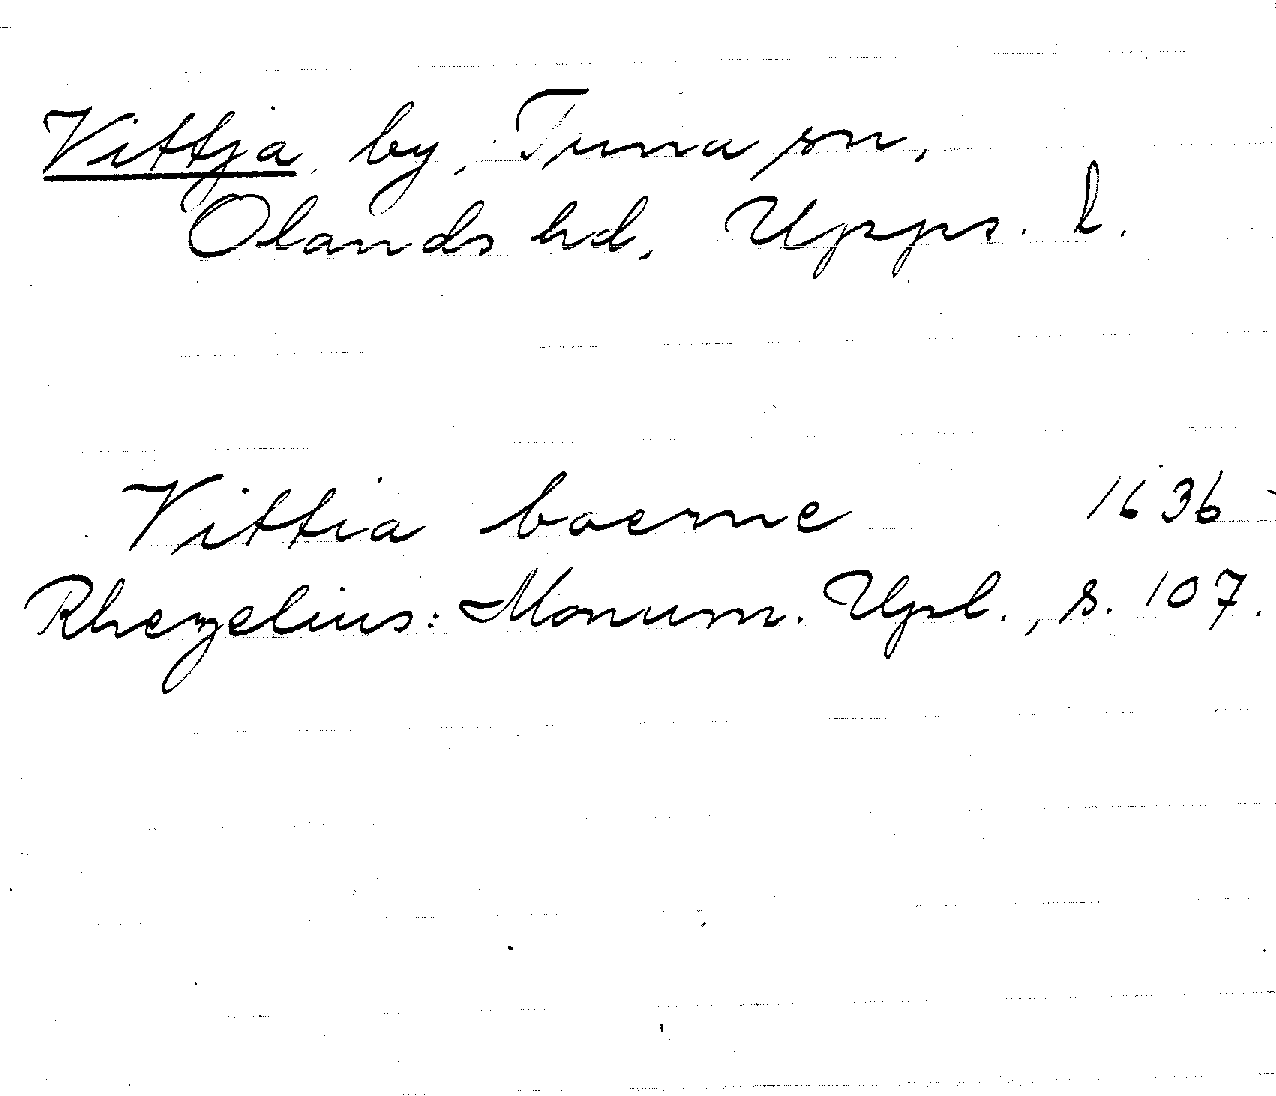 Vittja by, Tuna sn,
Olands hd, Upps. l.
Vittia boerne 1636
Rhezelius: Monum. Upl., s. 107.